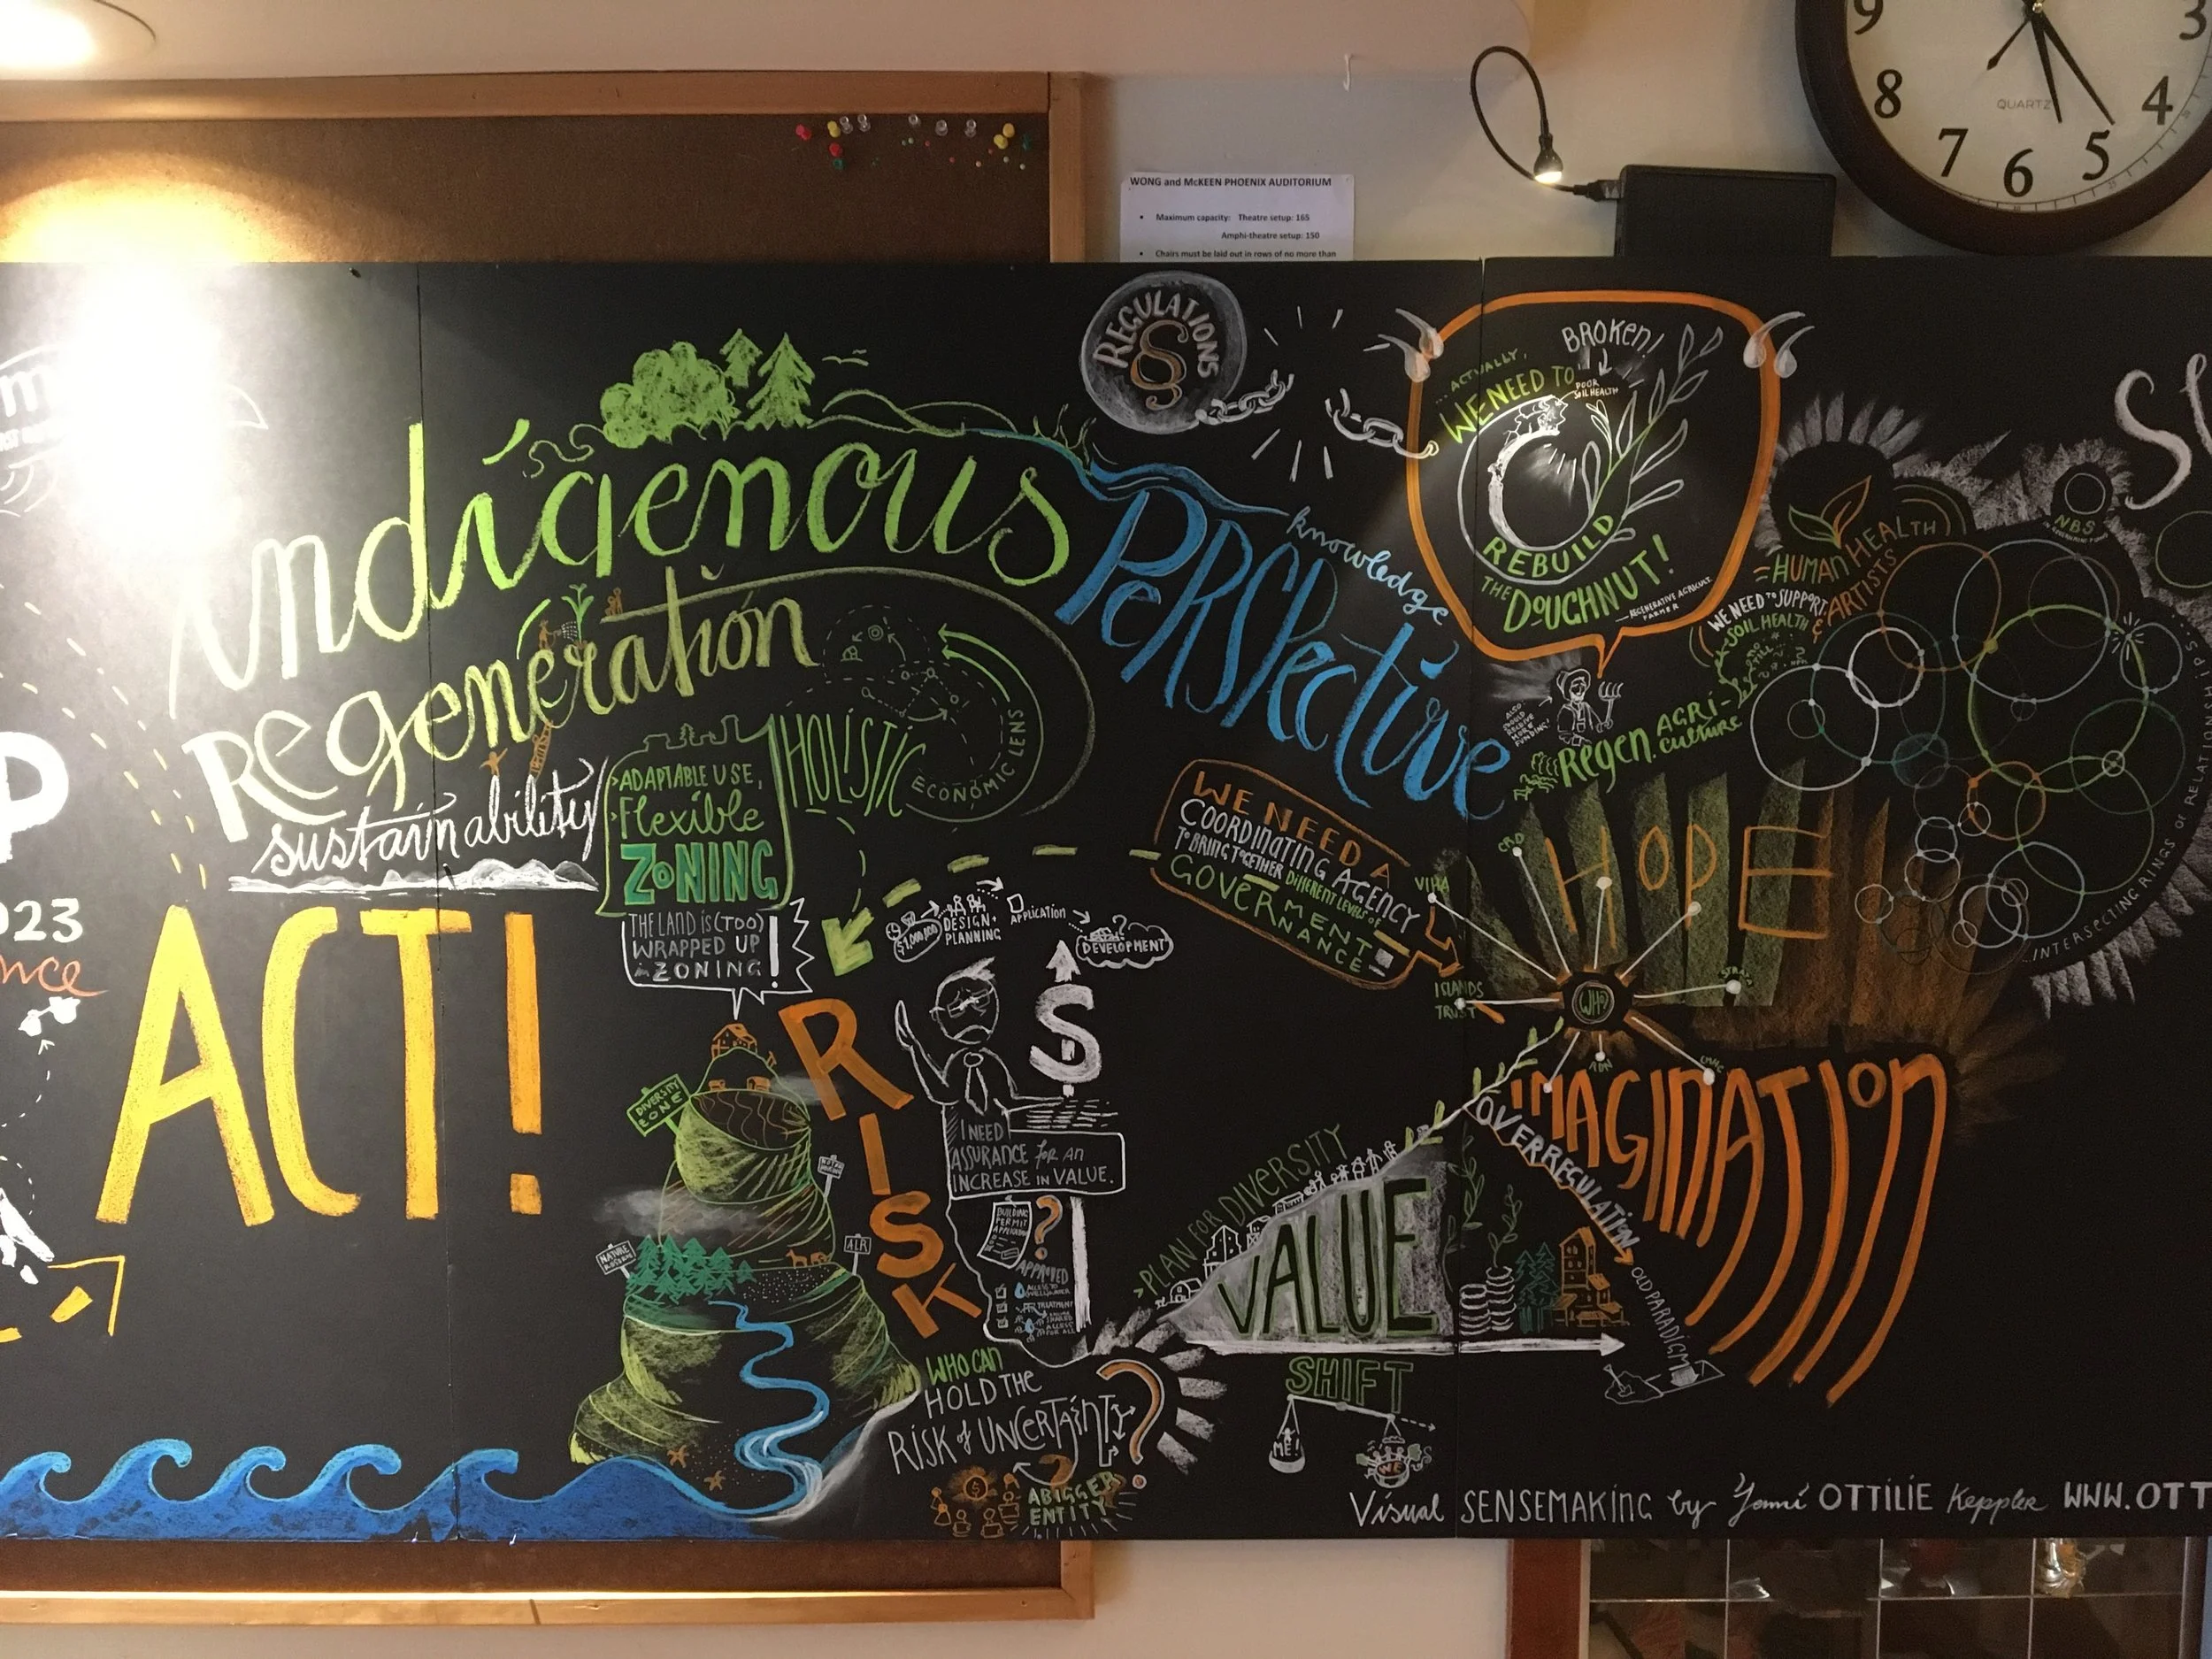 9
3
8
4
7
5
6
QUARTZ
WONG and McKEEN PHOENIX AUDITORIUM
• Maximum capacity: Theatre setup: 165
Amphi-theatre setup: 150
• Chairs must be laid out in rows of no more than
REGULATIONS
§
...ACTUALLY,
WE NEED TO
BROKEN!
POOR
SOIL HEALTH
REBUILD
THE DOUGHNUT!
REGENERATIVE AGRICULT.
FARMER
indigenous
PERSPective
knowledge
Regeneration
sustainability
ACT!
P
023
nce
>ADAPTABLE USE,
>Flexible
ZONING
HOLISTIC
ECONOMIC LENS
THE LAND IS (TOO)
WRAPPED UP
in ZONING!
WE NEED A
COORDINATING AGENCY
TO BRING TOGETHER DIFFERENT LEVELS OF
GOVERNMENT
NANCE
$1,000,000
DESIGN+
PLANNING
APPLICATION
DEVELOPMENT
= HUMAN HEALTH
WE NEED TO SUPPORT
SOIL HEALTH
& ARTISTS
NBS
ALSO
SHOULD
RECEIVE
MORE
FUNDING!
Regen. AGRI-
culture
HOPE
INTERSECTING RINGS OF RELATIONSHIPS
CRD
VIHA
ISLANDS
TRUST
WHO
RDN
IMAGINATION
OVERREGULATION
OLD PARADIGM
RISK
$
I NEED
ASSURANCE for AN
INCREASE in VALUE.
BUILDING
PERMIT
APPLICATION
?
APPROVED
DIVERSITY
ZONE
ALR
NATURE
>PLAN FOR DIVERSITY
VALUE
SHIFT
ME!
WE
WHO CAN
HOLD THE
RISK of UNCERTAINTY?
A BIGGER
ENTITY
Visual SENSEMAKING by Yami OTTILIE Keppler WWW.OTT